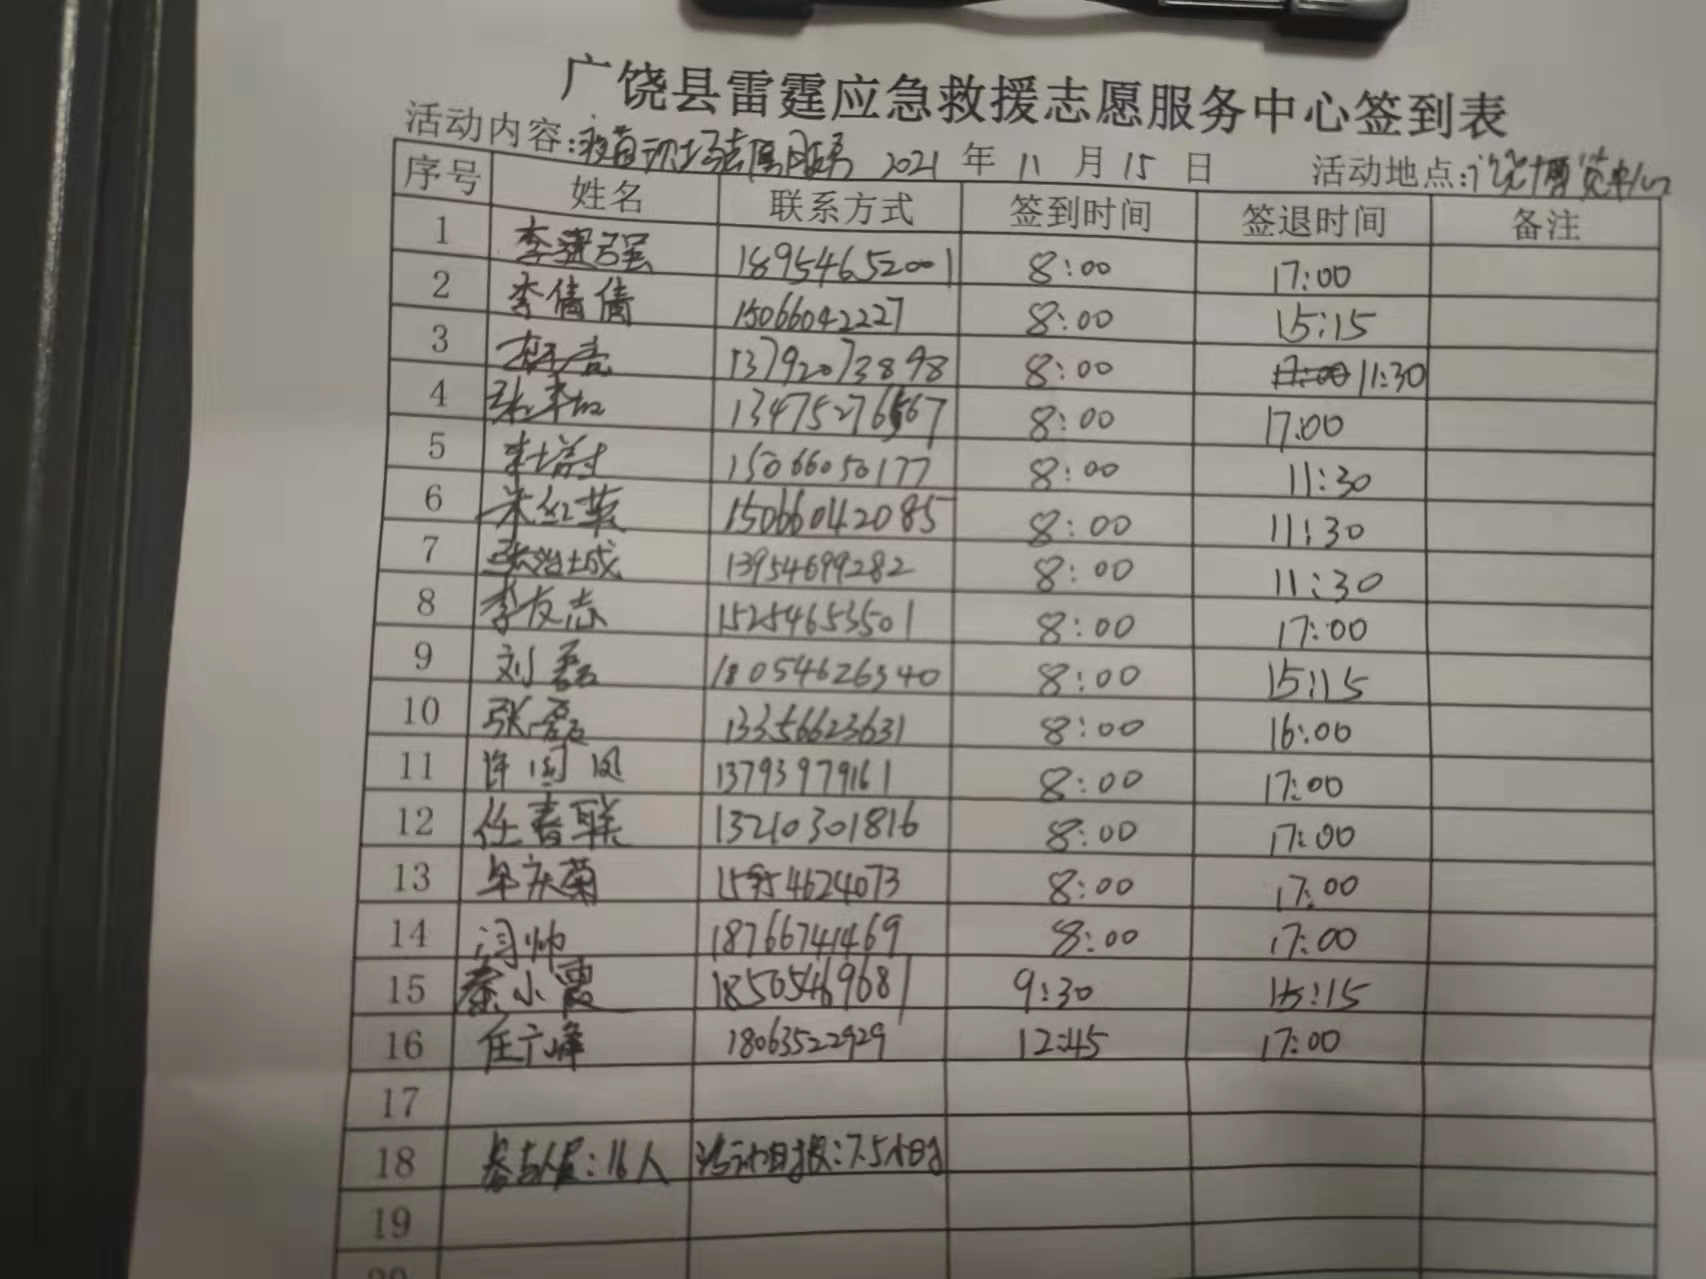 广饶县雷霆应急救援志愿服务中心签到表
活动内容:疫苗现场志愿服务 2021 年 11 月 15 日 活动地点:广饶博览中心
序号 姓名 联系方式 签到时间 签退时间 备注
1 李建强 18954652001 8:00 17:00
2 李倩倩 15066042227 8:00 15:15
3 13792073898 8:00 17:00 11:30
4 13475276567 8:00 17:00
5 15066050177 8:00 11:30
6 朱红菊 15066042085 8:00 11:30
7 张治城 13954699282 8:00 11:30
8 李友志 15254653501 8:00 17:00
9 刘磊 18054626340 8:00 15:15
10 张磊 13356623631 8:00 16:00
11 许国凤 13793979161 8:00 17:00
12 任春联 13210301816 8:00 17:00
13 牟庆菊 4624073 8:00 17:00
14 闫帅 18766741469 8:00 17:00
15 秦小霞 18505469681 9:30 15:15
16 任广峰 18063522929 12:45 17:00
17
18 参与人员:16人 活动时长:7.5小时
19
20